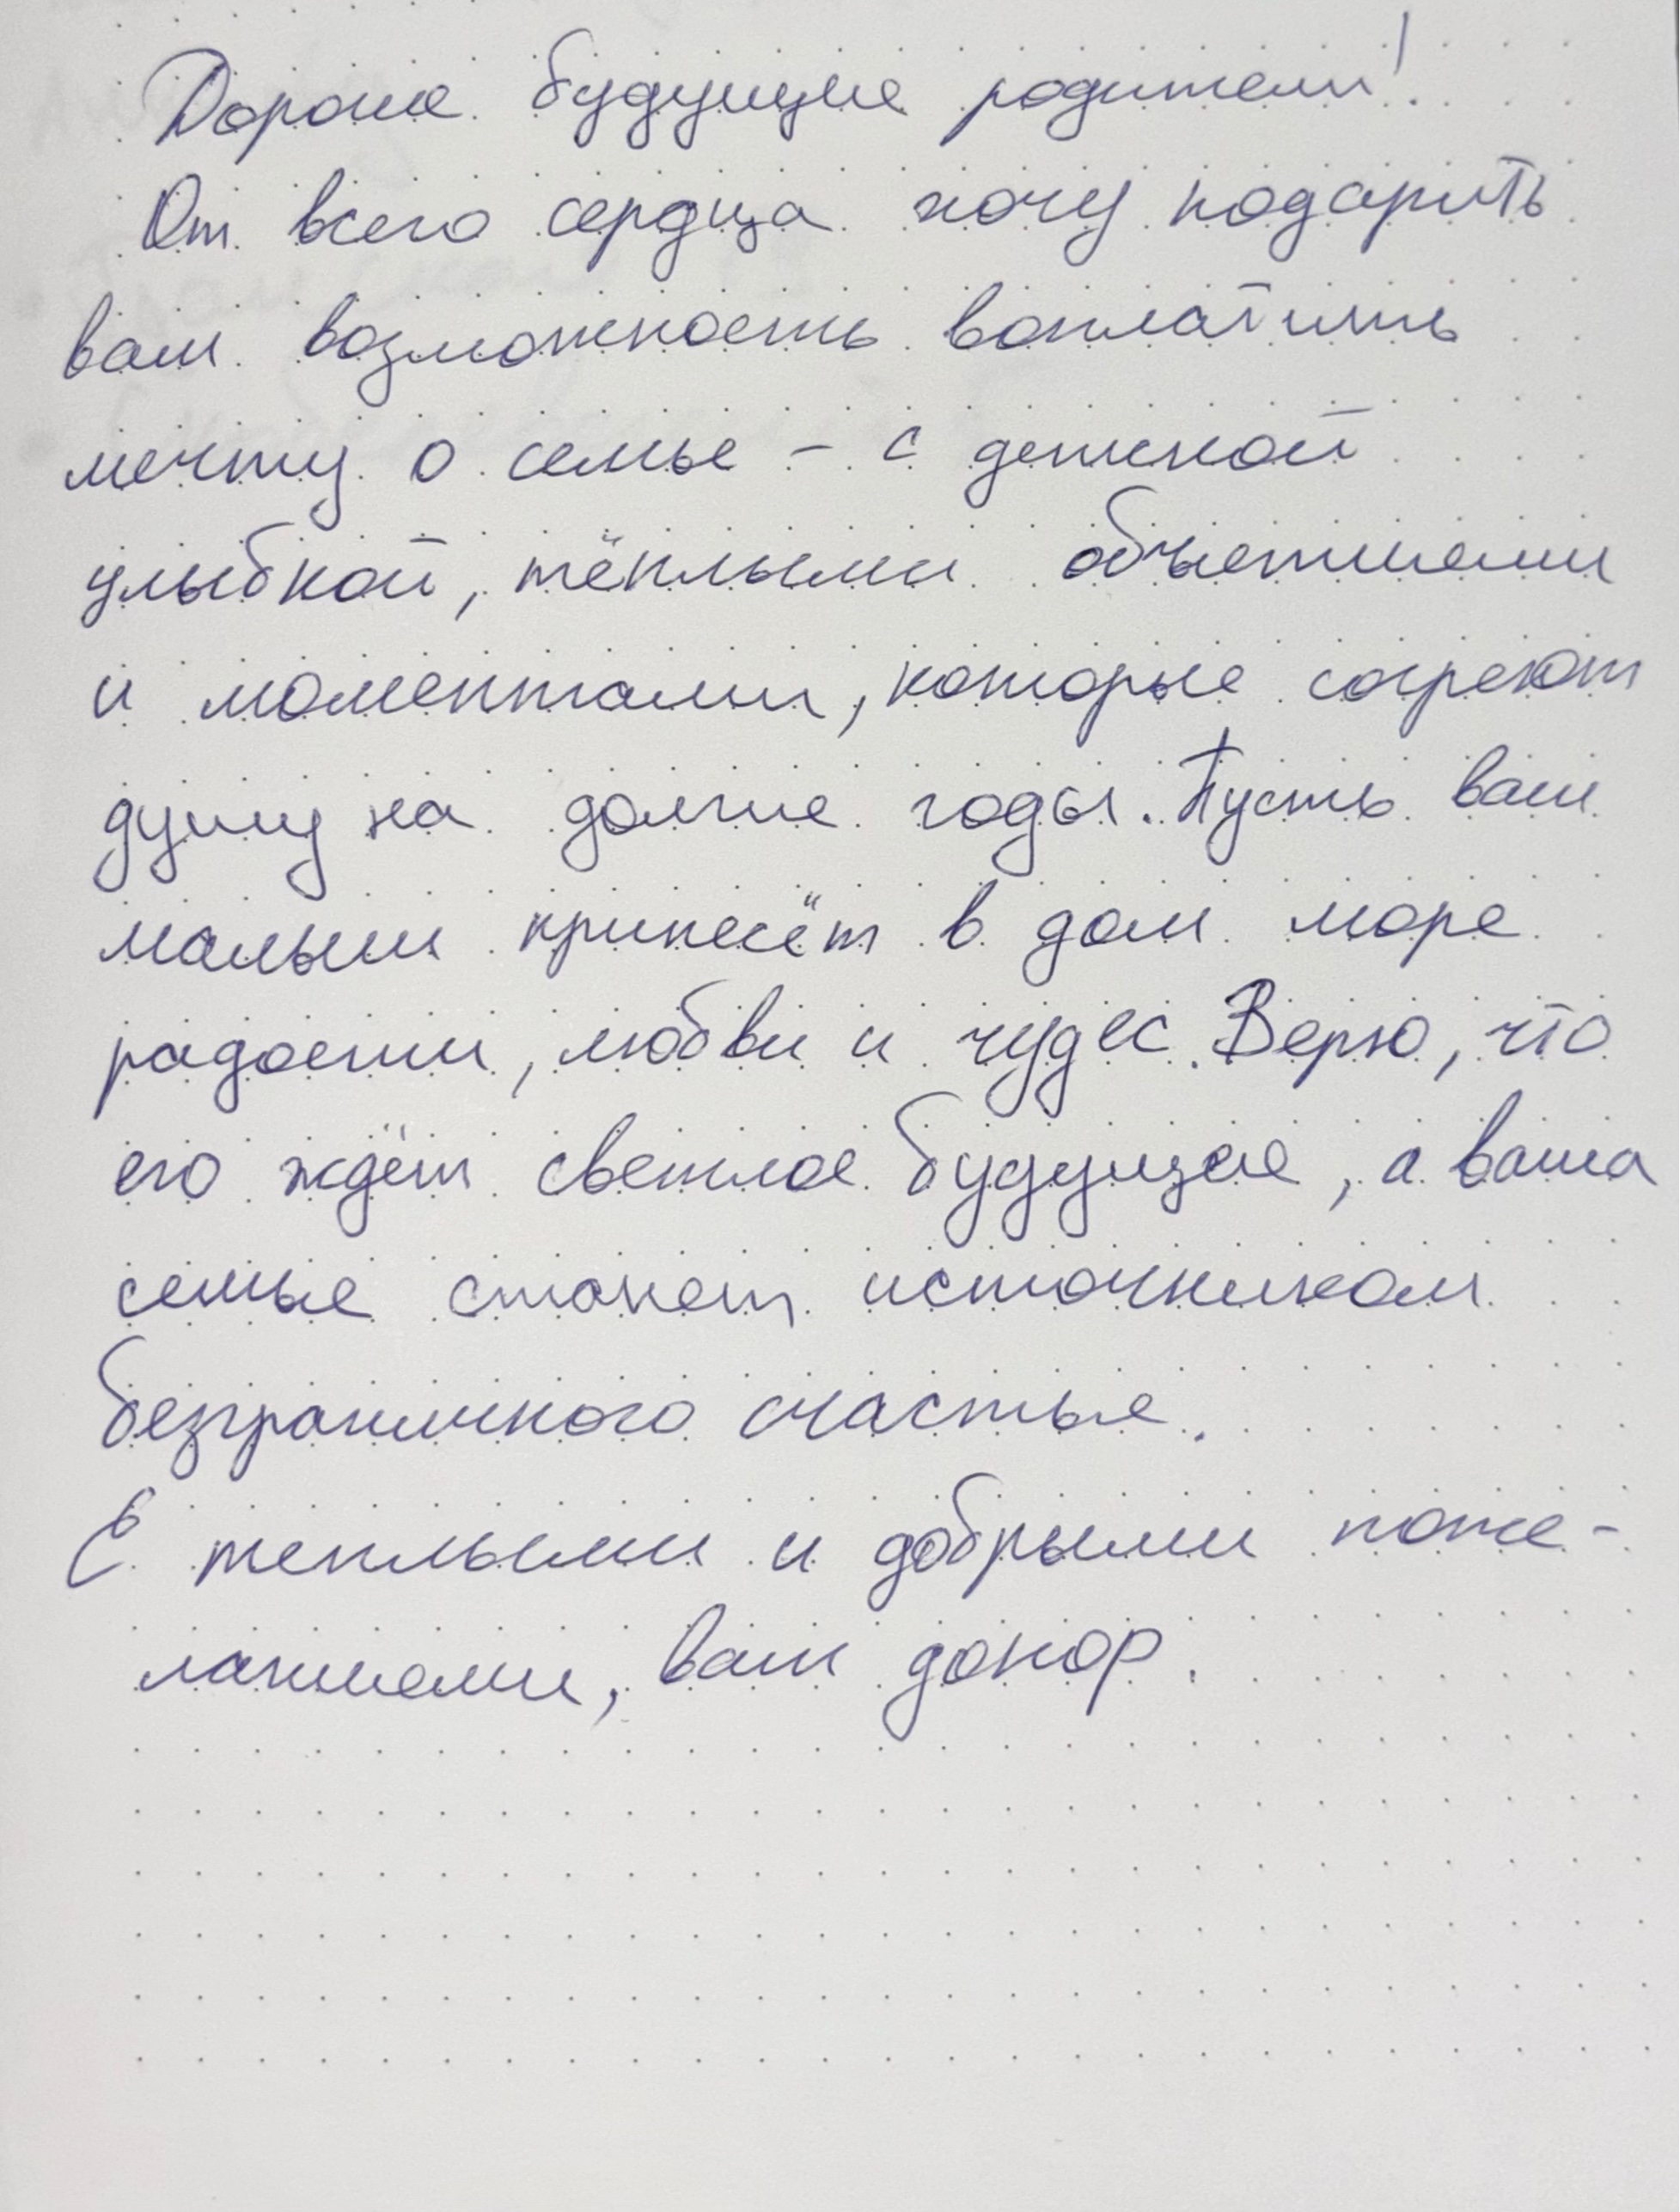 Дорогие будущие родители!
От всего сердца хочу подарить
вам возможность воплатить
мечту о семье – с детской
улыбкой, тёплыми объятиями
и моментами, которые согреют
душу на долгие годы. Пусть ваш
малыш принесёт в дом море
радости, любви и чудес. Верю, что
его ждёт светлое будущее, а ваша
семья станет источником
безграничного счастья.
С теплыми и добрыми поже-
ланиями, ваш донор.